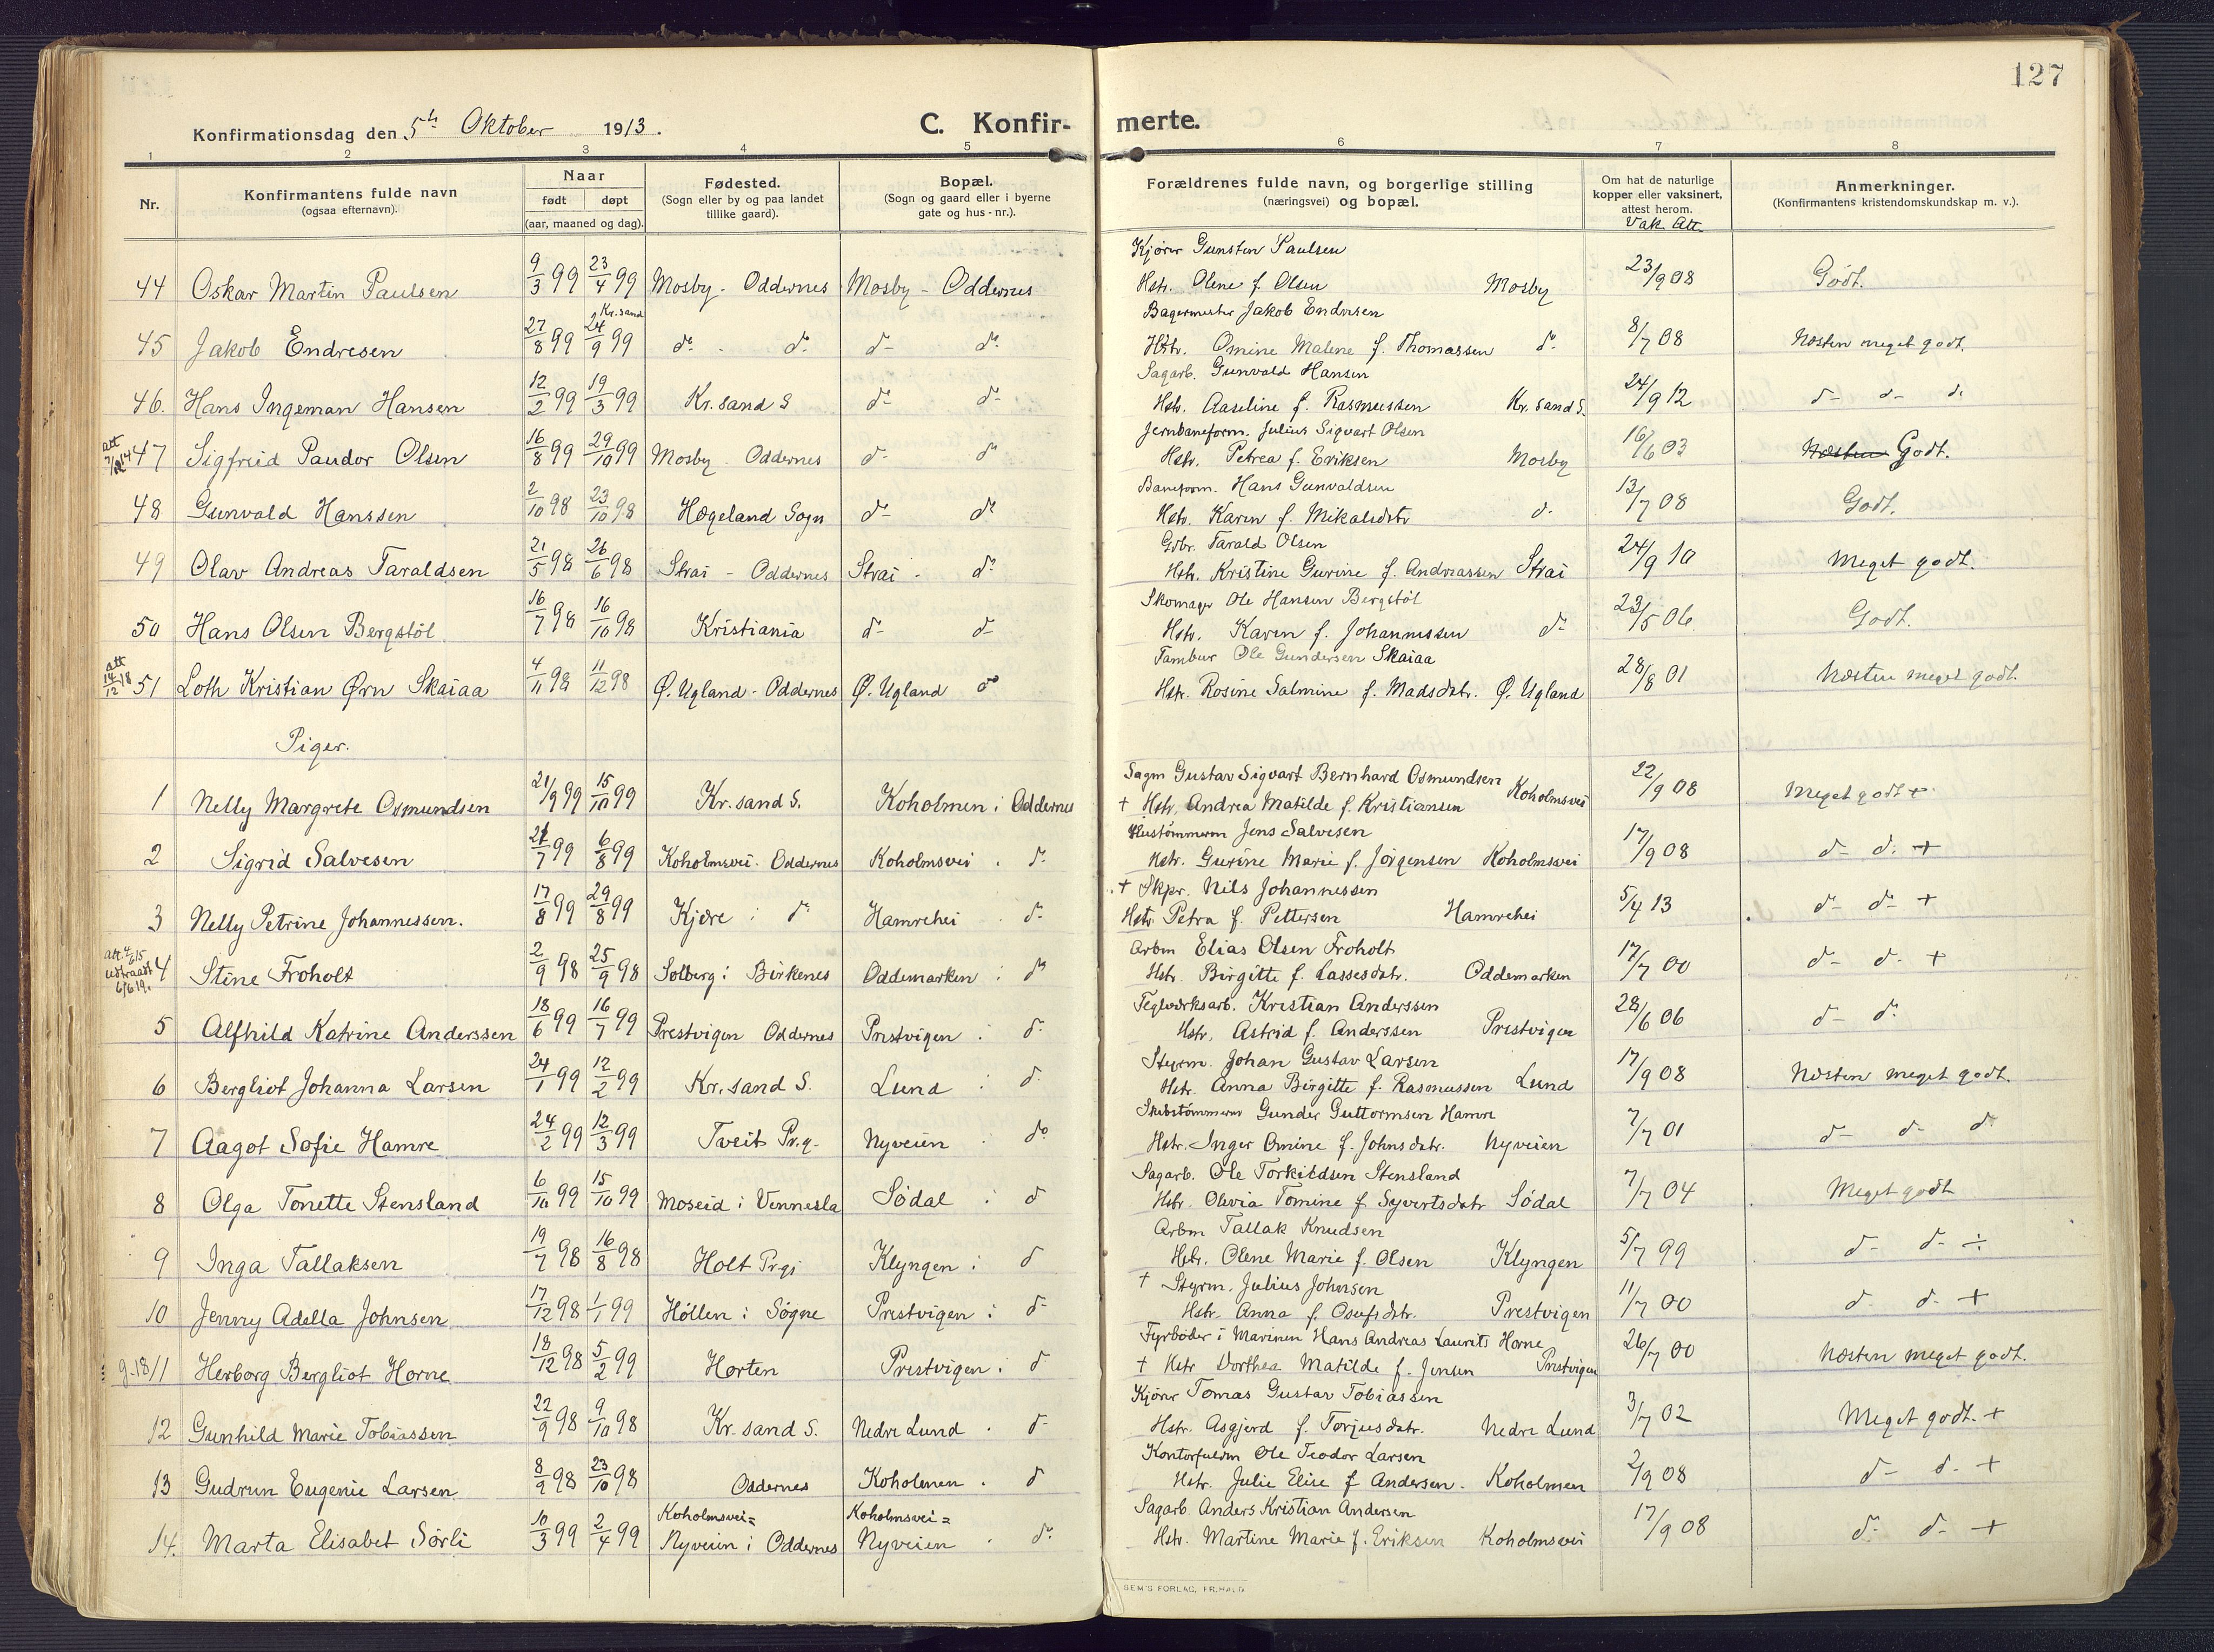 127
Konfirmationsdag den 5te Oktober 1913.
C. Konfir-
merte.
1 2 3 4 5 6 7 8
Nr.
Konfirmantens fulde navn
(ogsaa efternavn).
Naar
født døpt
(aar, maaned og dag).
Fødested.
(Sogn eller by og paa landet
tillike gaard).
Bopæl.
(Sogn og gaard eller i byerne
gate og hus-nr.).
Forældrenes fulde navn, og borgerlige stilling
(næringsvei) og bopæl.
Om hat de naturlige
kopper eller vaksinert,
attest herom.
Vak. Att.
Anmerkninger.
(Konfirmantens kristendomskundskap m. v.).
Kjører Gunsten Paulsen
44 Oskar Martin Paulsen 9/3 99 23/4 99 Mosby - Oddernes Mosby - Oddernes Hstr. Olene f. Olsen Mosby 23/9 08 Godt.
Kr.sand
Bagermester Jakob Endresen
45 Jakob Endresen 27/8 99 24/9 99 do. - do. do- do. Hstr. Omine Malene f. Thomassen do- 8/7 08 Næsten meget godt.
Sagarb. Gunvald Hansen
46. Hans Ingeman Hansen 12/2 99 19/3 99 Kr.sand S do- do- Hstr. Aaseline f. Rasmussen Kr.sand S. 24/9 12 do- do- do.
Jernbaneform. Julius Sigvart Olsen
att
47 Sigfreid Pauder Olsen 16/8 99 29/10 99 Mosby - Oddernes do- do Hstr. Petrea f. Eriksen Mosby 16/6 03 Næsten Godt.
Baneform. Hans Gunvaldsen
48 Gunvald Hanssen 2/10 98 23/10 98 Hægeland Sogn do- do Hstr. Karen f. Mikalsdtr do. 13/7 08 Godt.
Gdbr. Tarald Olsen
49 Olav Andreas Taraldsen 21/5 98 26/6 98 Strai - Oddernes Strai - do Hstr. Kristine Gurine f. Andreassen Strai 24/9 10 Meget godt.
Skomager Ole Hansen Bergstöl
50 Hans Olsen Bergstöl 16/7 98 16/10 98 Kristiania do- do- Hstr. Karen f. Johannessen do- 23/5 06 Godt.
Tambur Ole Gundersen Skaiaa
att 14/12 18
51 Loth Kristian Ørn Skaiaa 4/11 98 11/12 98 Ø. Ugland - Oddernes Ø. Ugland do Hstr. Rosine Salmine f. Madsdtr. Ø. Ugland 28/8 01 Næsten meget godt.
Piger.
Sagm Gustav Sigvart Bernhard Osmundsen
1 Nelly Margrete Osmundsen 21/9 99 15/10 99 Kr.sand S. Koholmen i Oddernes + Hstr. Andrea Matilde f. Kristiansen Koholmsvei 22/9 08 Meget godt +
Hustömmerm Jens Salvesen
2 Sigrid Salvesen 21/7 99 6/8 99 Koholmsvei - Oddernes Koholmsvei - do. Hstr. Gurine Marie f. Jörgensen Koholmsvei 17/9 08 do- do. +
+ Skpr. Nils Johannessen
3 Nelly Petrine Johannessen. 17/8 99 29/8 99 Kjære i do Hamrehei - do- Hstr. Petra f. Pettersen Hamrehei 5/4 13 do- do- +
Arbm Elias Olsen Froholt
4 Stine Froholt 2/9 98 25/9 98 Solberg i Birkenes Oddemarken i do Hstr. Birgitte f. Lassesdtr. Oddemarken 17/7 00 do- do. +
Teglverksarb. Kristian Anderssen
5 Alfhild Katrine Anderssen 18/6 99 16/7 99 Prestvigen Oddernes Prestvigen i do. Hstr. Astrid f. Anderssen Prestvigen 28/6 06 do- do.
Styrm. Johan Gustav Larsen
6 Bergliot Johanna Larsen 24/1 99 12/2 99 Kr.sand S. Lund i do Hstr. Anna Birgitte f. Rasmussen Lund 17/9 08 Næsten meget godt.
Skibstömmerm Gunder Guttormsen Hamre
7 Aagot Sofie Hamre 24/2 99 12/3 99 Tveit Pr.g. Nyveien - do Hstr. Inger Omine f. Johnsdtr. Nyveien 7/7 01 do- do- do
Sagarb. Ole Torkildsen Stensland
8 Olga Tonette Stensland 6/10 99 15/10 99 Moseid i Vennesla Södal i do Hstr. Olivia Tomine f Syvertsdtr Södal 7/7 04 Meget godt
Arbm Tallak Knudsen
9 Inga Tallaksen 19/7 98 16/8 98 Holt Prgj Klyngen i do Hstr. Olene Marie f. Olsen Klyngen 5/7 99 do- do- ÷
+ Styrm. Julius Johnsen
10 Jenny Adella Johnsen 17/12 98 1/1 99 Höllen i Søgne Prestvigen i do- Hstr. Anna f. Osufsdtr. Prestvigen 11/7 00 do- do- +
Fyrböder i Marinen Hans Andreas Laurits Horne
11 Herborg Bergliot Horne 18/12 98 5/2 99 Horten Prestvigen i do + Hstr Dorthea Matilde f. Jensen Prestvigen 26/7 00 Næsten meget godt.
Kjörer Tomas Gustav Tobiassen
12 Gunhild Marie Tobiassen 22/9 98 9/10 98 Kr.sand S. Nedre Lund - do- Hstr. Asgjerd f. Torjusdtr. Nedre Lund 3/7 02 Meget godt. +
Kontorfuldm Ole Teodor Larsen
13 Gudrun Eugenie Larsen 8/9 98 23/10 98 Oddernes Koholmen - do Hstr. Julie Elise f Andersen. Koholmen 2/9 08 do- do- +
Koholmsvei= Koholmsvei=
Sagarb. Anders Kristian Andersen
14. Marta Elisabet Sörli 10/3 99 2/4 99 Nyveien i Oddernes Nyveien - do. Hstr. Martine Marie f. Eriksen Koholmsvei 17/9 08 do- do- +
SEM'S FORLAG, FR.HALD